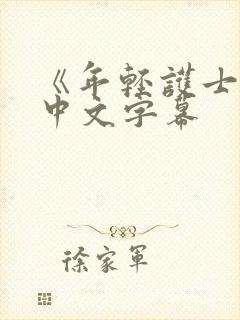 《年轻護士
中文字幕
徐家軍